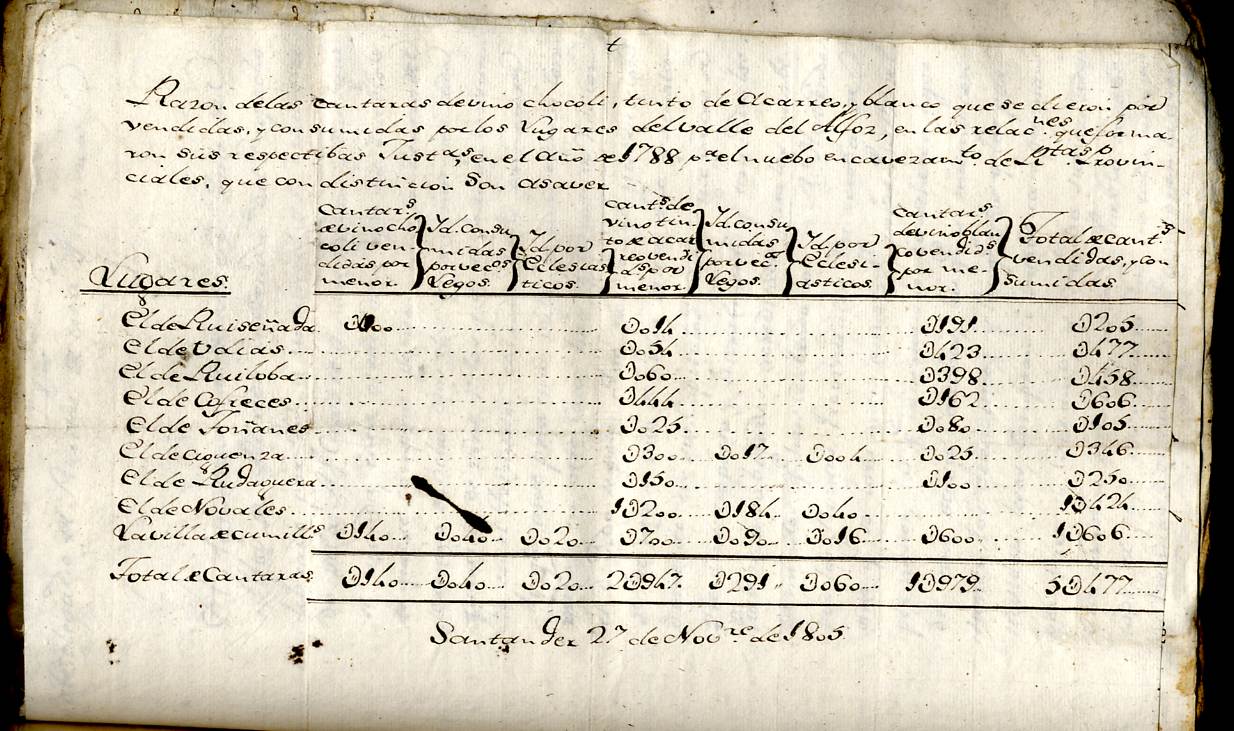 t
Razon delas cantaras devino chocoli, tinto de Acarreo, y blanco que se dieron por
vendidas, y consumidas por los Lugares del valle del Alfoz, en las relac.nes que forma
ron sus respectibas Just.as, en el año de 1788 p.a el nuebo encavezam.to de R.tas Provin-
ciales, que con distincion son asaver
Lugares. cantar.s de vino cho coli ven- didas por menor. Yd. consu midas por vec.os Legos. Yd. por Eclesias ticos. cant.s de vino tin- to de acar reo vendi d.s por menor. Yd. consu midas por vec.s Legos. Yd. por Eclesi- asticos. cantar.s de vino blan co vendid.s por me- nor. Total de cant.s vendidas, y con sumidas
El de Ruiseñada 0014 0191 0205
El de Udias 0054 0423 0477
El de Ruiloba 0060 0398 0458
El de Cofreces 0444 0162 0606
El de Toñanes 0025 0080 0105
El de Ciguenza 0300 0017 0004 0025 0346
El de Rudaguera 0150 0100 0250
El de Novales 10200 0184 0040 10424
La villa de cumill.s 0140 0040 0020 0700 0090 0016 0600 10606
Total de Cantaras 0140 0040 0020 20947 0291 0060 10979 50477
Santander 27 de Nob.re de 1805